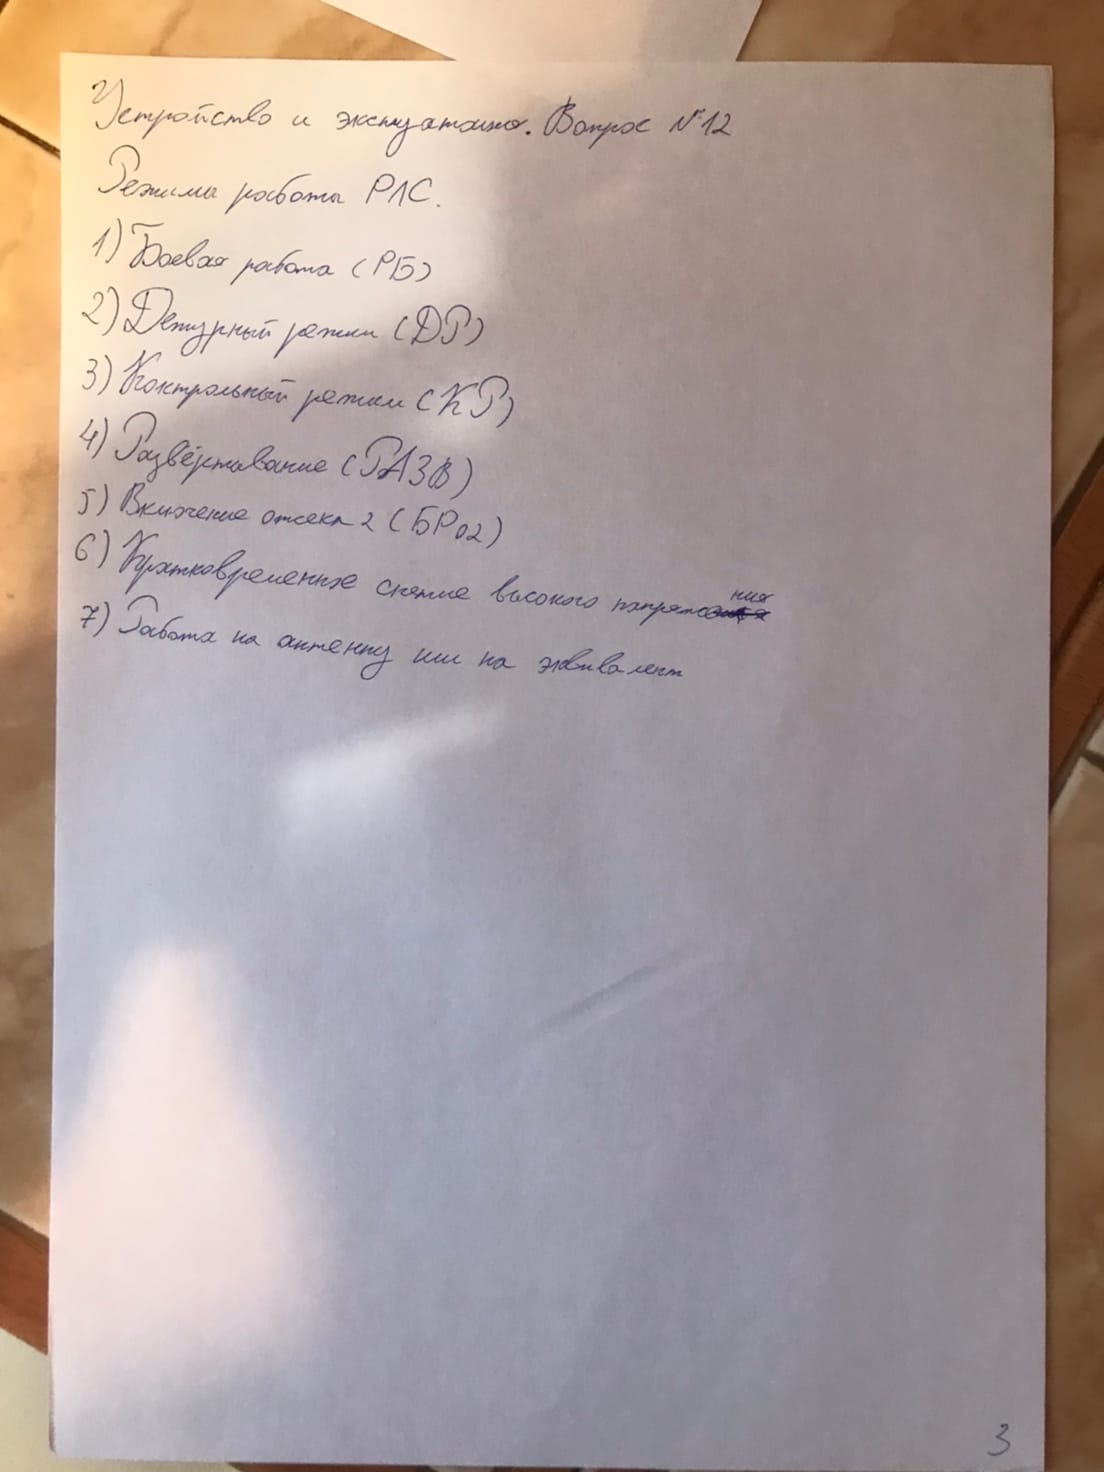 Устройство и эксплуатация. Вопрос №12
Режимы работы РЛС.
1) Боевая работа (РБ)
2) Дежурный режим (ДР)
3) Контрольный режим (КР)
4) Развёртывание (РАЗВ)
5) Включение отсека 2 (БР02)
6) Кратковременное снятие высокого напряжения
7) Работа на антенну или на эквивалент
3